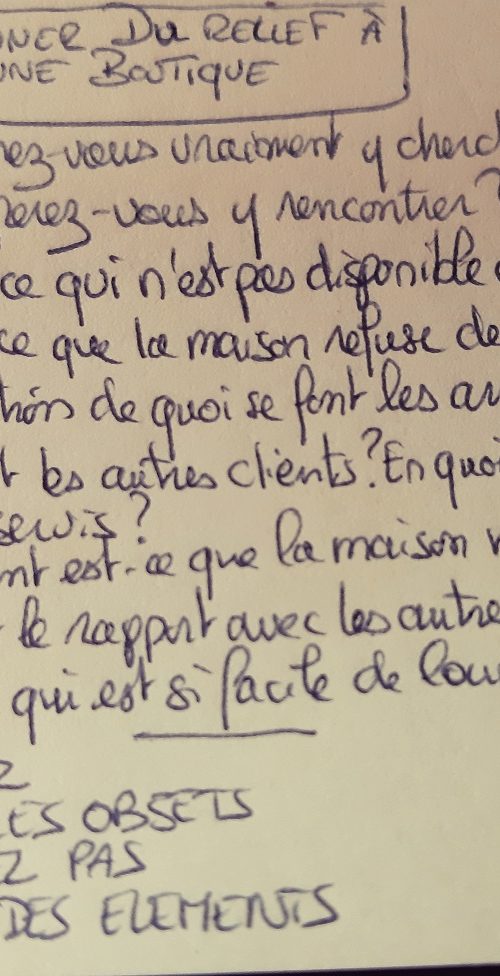 NER DU RELIEF À
UNE BOUTIQUE
rez-vous vraiment y cherc
rerez-vous y rencontrer?
ce qui n'est pas disponible
ce que la maison refuse de
tion de quoi se font les au
t les autres clients? En quoi
servis?
nt est-ce que la maison
le rapport avec les autre
qui est si facile de lou
Z
LES OBJETS
Z PAS
DES ELEMENTS